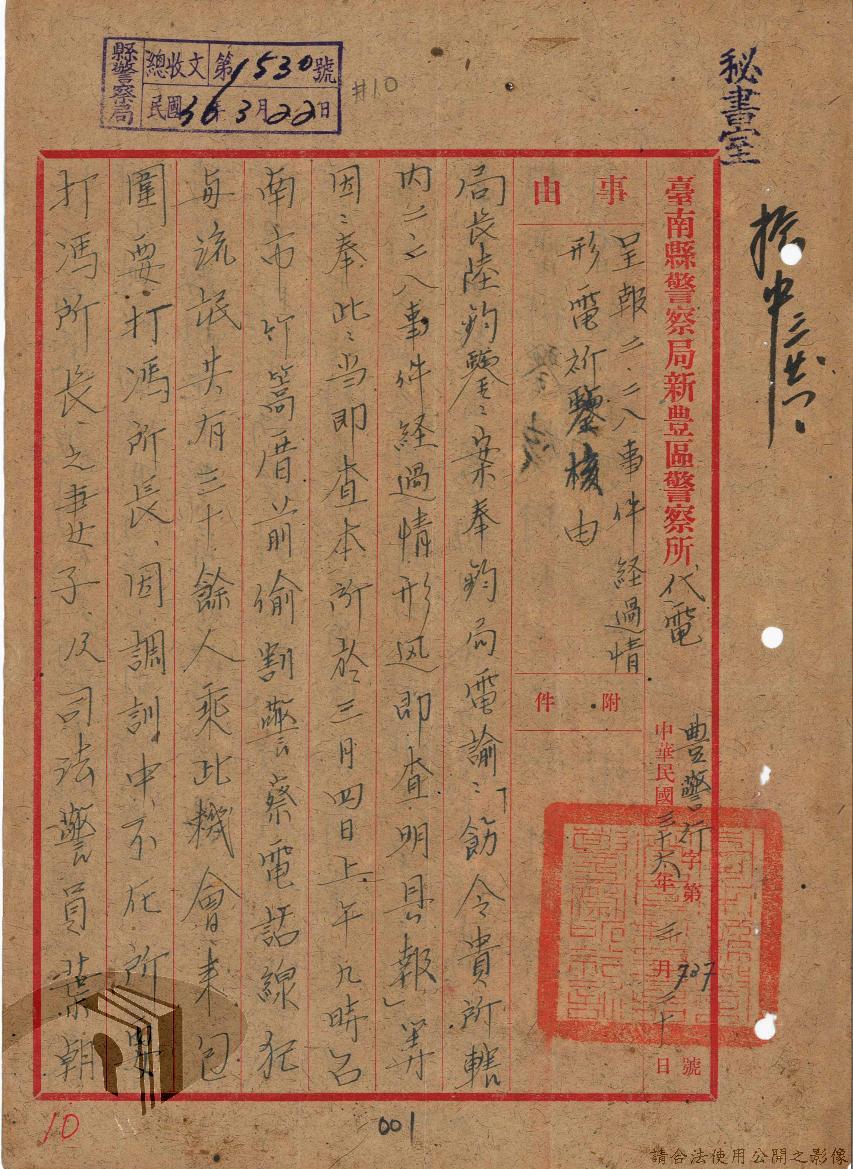 秘書室
縣警察局
總收文 第1530號
民國36年3月22日
#10
臺南縣警察局新豊區警察所 代電
豊警行字第737號
中華民國三十六年三月二十日
事由
呈報二、二八事件経過情
形電祈鑒核由
附件
局長陸鈞鑒:案奉鈞局電諭:「飭令貴所轄
内二、二八事件経過情形迅即查明具報」等
因:奉此:当即查本所於三月四日上午九時
南市竹篙厝前偷割警察電話線
流氓共有三十餘人乘此機會來包
圍要打馮所長、因調訓中、不在所要
打馮所長、之妻女子、及司法警員葉朝
10
001
請合法使用公開之影像